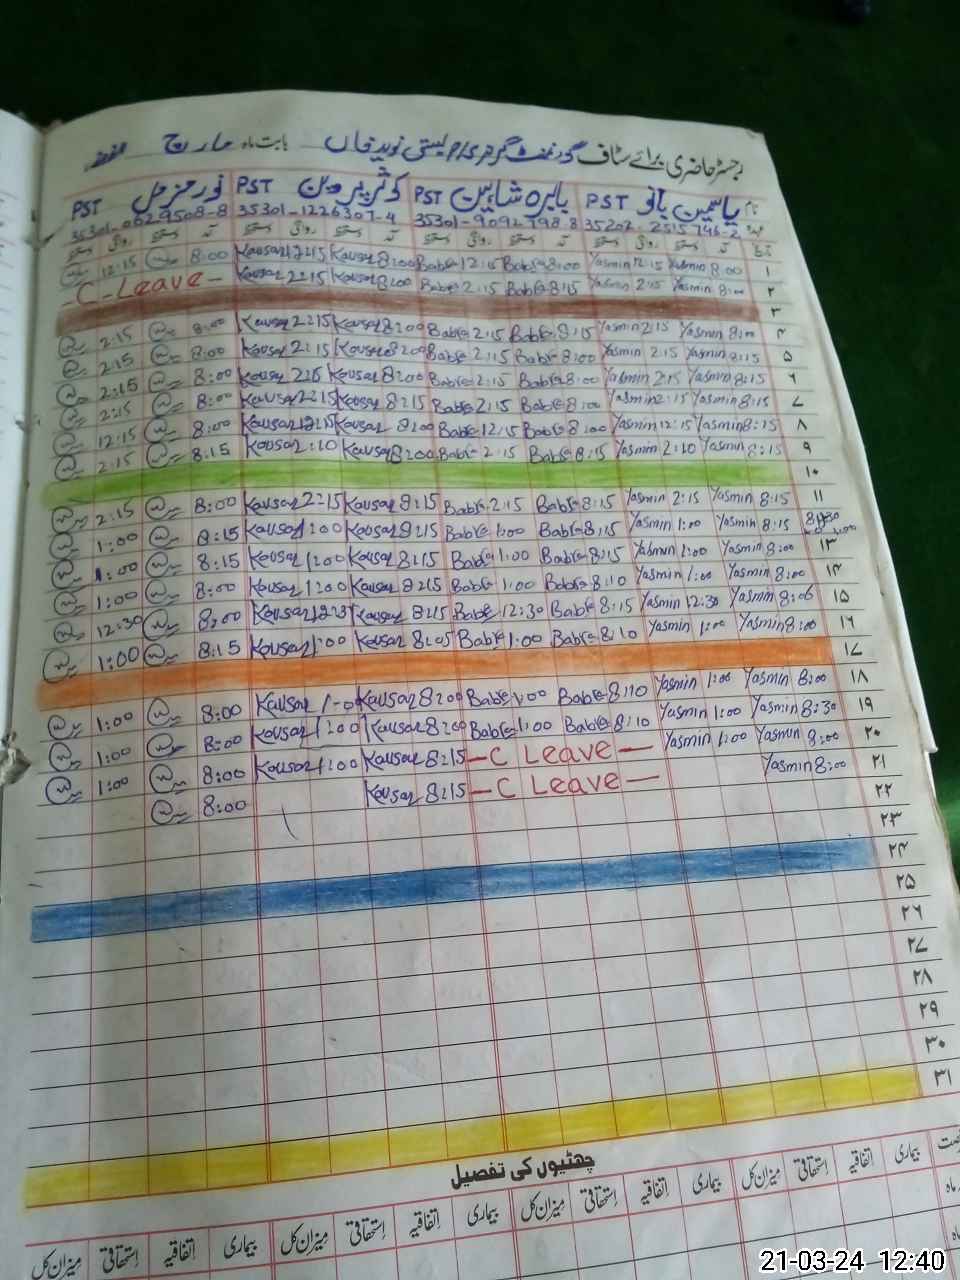 رجسٹر حاضری برائے سٹاف گورنمنٹ گرلز بابت ماہ مارچ
نام یاسمین بانو PST بابرہ شاہین PST کوثر پروین PST نور PST
35202-2515746-2 35301-9092798-8 35301-1226307-4 35301-0629508-8
۱ Yasmin 8:00 Yasmin 12:15 Babra 8:00 Babra 12:15 Kausar 8:00 Kausar 12:15 8:00 12:15
۲ Yasmin 8:00 Yasmin 2:15 Babra 8:15 Babra 2:15 Kausar 8:00 Kausar 2:15 - C - Leave -
۳
۴ Yasmin 8:00 Yasmin 2:15 Babra 8:15 Babra 2:15 Kausar 8:00 Kausar 2:15 8:00 2:15
۵ Yasmin 8:15 Yasmin 2:15 Babra 8:00 Babra 2:15 Kausar 8:00 Kausar 2:15 8:00 2:15
۶ Yasmin 8:15 Yasmin 2:15 Babra 8:00 Babra 2:15 Kausar 8:00 Kausar 2:15 8:00 2:15
۷ Yasmin 8:15 Yasmin 2:15 Babra 8:00 Babra 2:15 Kausar 8:15 Kausar 2:15 8:00 2:15
۸ Yasmin 8:15 Yasmin 12:15 Babra 8:00 Babra 12:15 Kausar 8:00 Kausar 12:15 8:00 12:15
۹ Yasmin 8:15 Yasmin 2:10 Babra 8:15 Babra 2:15 Kausar 8:00 Kausar 2:10 8:15 2:15
۱۰
۱۱ Yasmin 8:15 Yasmin 2:15 Babra 8:15 Babra 2:15 Kausar 8:15 Kausar 2:15 8:00 2:15
Yasmin 8:15 Yasmin 1:00 Babra 8:15 Babra 1:00 Kausar 8:15 Kausar 1:00 8:15 1:00
۱۳ Yasmin 8:00 Yasmin 1:00 Babra 8:15 Babra 1:00 Kausar 8:15 Kausar 1:00 8:15 1:00
۱۴ Yasmin 8:00 Yasmin 1:00 Babra 8:10 Babra 1:00 Kausar 8:15 Kausar 1:00 8:00 1:00
۱۵ Yasmin 8:06 Yasmin 12:30 Babra 8:15 Babra 12:30 Kausar 8:15 Kausar 8:00 12:30
۱۶ Yasmin 8:00 Yasmin 1:00 Babra 8:10 Babra 1:00 Kausar 8:05 Kausar 1:00 8:15 1:00
۱۷
۱۸ Yasmin 8:00 Yasmin 1:00 Babra 8:10 Babra 1:00 Kausar 8:00 Kausar 8:00 1:00
۱۹ Yasmin 8:30 Yasmin 1:00 Babra 8:10 Babra 1:00 Kausar 8:00 Kausar 1:00 8:00 1:00
۲۰ Yasmin 8:00 Yasmin 1:00 - C Leave - Kausar 8:15 Kausar 1:00 8:00 1:00
۲۱ Yasmin 8:00 - C Leave - Kausar 8:15 8:00
۲۲
۲۳
۲۴
۲۵
۲۶
۲۷
۲۸
۲۹
۳۰
۳۱
چھٹیوں کی تفصیل
بیماری اتفاقیہ استحقاقی میزان کل بیماری اتفاقیہ استحقاقی میزان کل بیماری اتفاقیہ استحقاقی میزان کل بیماری اتفاقیہ استحقاقی میزان کل
21-03-24 12:40